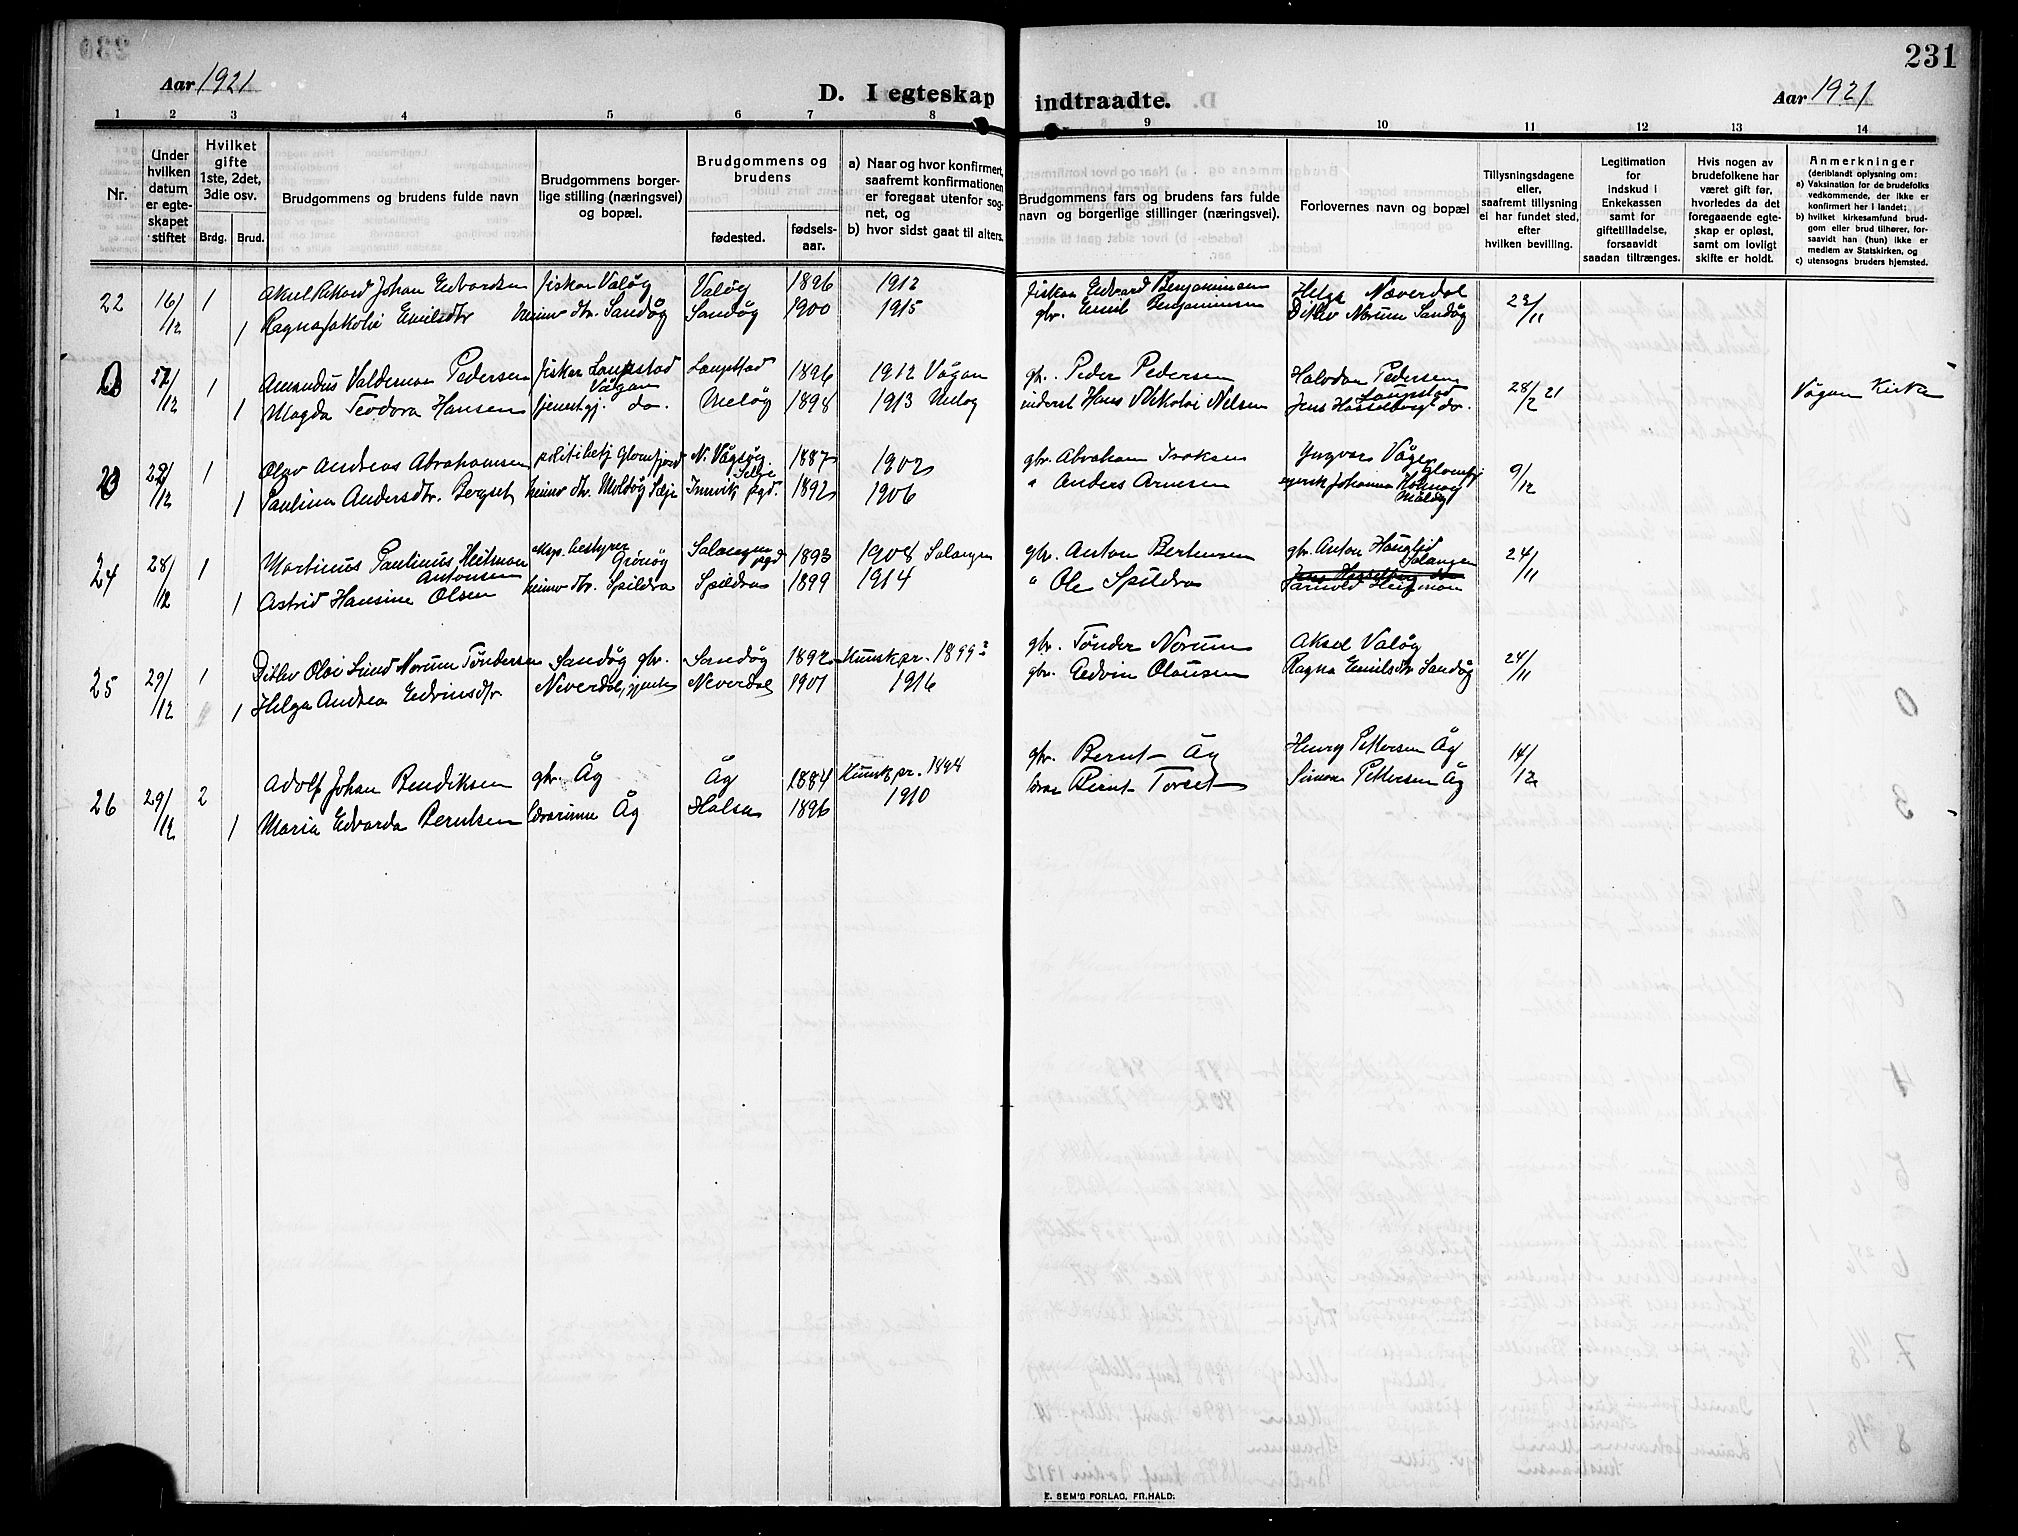 231
Aar 1921
D. I egteskap indtraadte.
Aar 1921
1 2 3 4 5 6 7 8 9 10 11 12 13 14
Nr.
Under hvilken datum er egte-skapet stiftet
Hvilket gifte 1ste, 2det, 3die osv.
Brdg. Brud.
Brudgommens og brudens fulde navn
Brudgommens borger-lige stilling (næringsvei) og bopæl.
Brudgommens og brudens
fødested. fødsels-aar.
a) Naar og hvor konfirmert, saafremt konfirmationen er foregaat utenfor sog-net, og
b) hvor sidst gaat til alters.
Brudgommens fars og brudens fars fulde navn og borgerlige stillinger (næringsvei).
Forlovernes navn og bopæl
Tillysningsdagene eller, saafremt tillysning ei har fundet sted, efter hvilken bevilling.
Legitimation for indskud i Enkekassen samt for giftetilladelse, forsaavidt saadan tiltrænges.
Hvis nogen av brudefolkene har været gift før, hvorledes da det foregaaende egte-skap er opløst, samt om lovligt skifte er holdt.
Anmerkninger (deriblandt oplysning om:
a) Vaksination for de brudefolks vedkommende, der ikke er konfirmert her i landet;
b) hvilket kirkesamfund brud-gom eller brud tilhører, for-saavidt han (hun) ikke er medlem av Statskirken, og
c) utensogns bruders hjemsted.
22 16/12 1 Aksel Rikard Johan Edvardsen fisker Valøg Valøg 1896 1912 fisker Edvard Benjaminsen Helga Næverdal 23/11
1 Ragna Jakobie Emilsdtr heimv dtr. Sandøg Sandøg 1900 1915 gbr. Emil Benjaminsen Ditlev Norum Sandøg
1 Amandus Valdemar Pedersen fisker Laupstad Vågan Laupstad 1896 1912 Vågan gbr. Peder Pedersen Halvdan Pedersen Laupstad 28/2 21 Vågan Kirke
1 Magda Teodora Hansen tjenestgj. do. Meløy 1898 1913 Meløg inderst Hans Nikolai Nilsen Jens Hasselberg do.
23 22/12 1 Olav Andreas Abrahamsen politibetj Glomfjord N. Vågsøg Selje 1887 1902 gbr. Abraham Isaksen Yngvar Våge Glomfj 9/12
1 Paulina Andersdtr. Bergset heimv dtr. Moldøg Selje Innvik pgd. 1892 1906 " Anders Arnesen Johanna Måløg
24 28/12 1 Martinus Paulinus Heitman Antonsen eksp. bestyrer Grønøg Salangen pgd 1893 1908 Salangen gbr. Anton Bertensen gbr. Anton Hauglid Salangen 24/11
1 Astrid Hansine Olsen heimv dtr. Spildra Spildra 1899 1914 " Ole Spildra Jens Hasselberg do
25 29/12 1 Ditlev Olai Lund Norum Tøndersen Sandøg gbr. Sandøg 1892 Kunsk pr. 1899? gbr. Tønder Norum Aksel Valøg 24/11
1 Helga Andrea Edvinsdtr. Neverdal, tjente Neverdal 1901 1916 gbr. Edvin Olausen Ragna Emilsdtr Sandøg
26 29/12 2 Adolf Johan Bendiksen gbr. Åg Åg 1884 Kunsk pr. 1898 gbr Bernt Åg Henry Pettersen Åg 14/12
1 Maria Edvarda Berntsen Åg Halsa 1896 1910 Bernt Torset Simon Pettersen Åg
E. SEM'S FORLAG, FR.HALD.